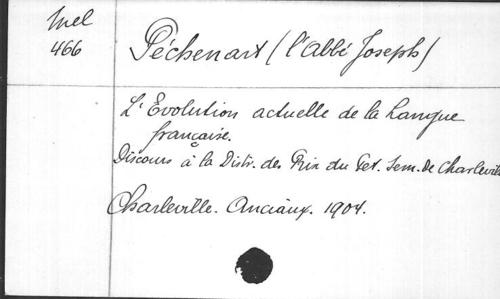 Mel
466
Péchenart (l'Abbé Joseph)
L'Evolution actuelle de la Langue
française.
Discours à la Distr. des Prix du Pet. Sem. de Charleville
Charleville. Anciaux. 1904.